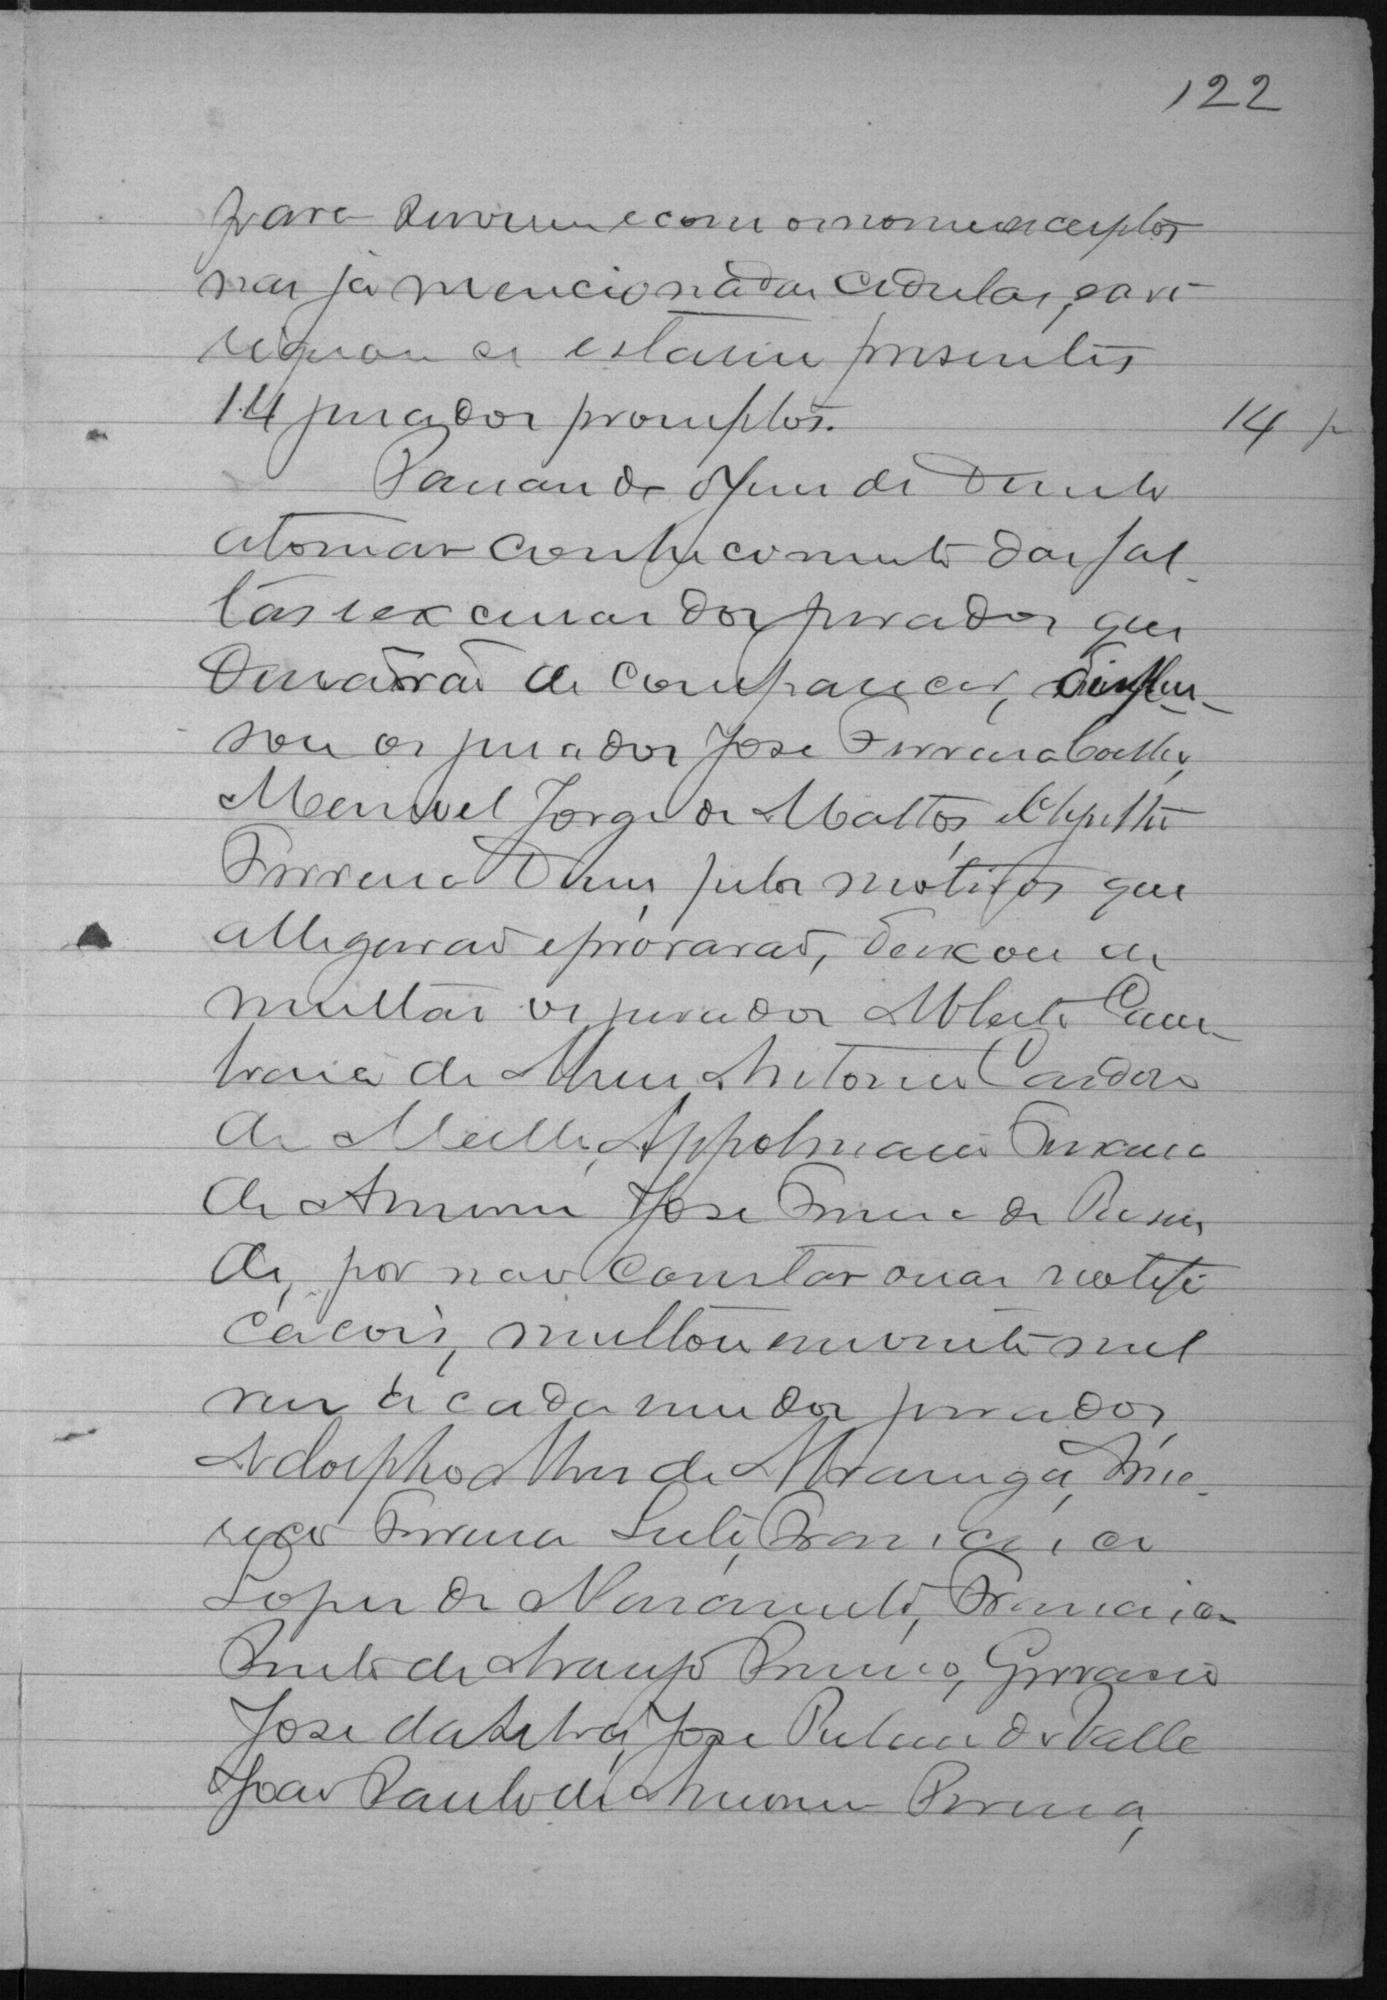 122
para servirem e com os nomes escriptos
nas já mencionadas cedulas, e ave
riguou se estarem presentes
14 jurados promptos. 14 p
Passando o Juiz de Direito
a tomar conhecimento das fal-
tas e excusas dos jurados que
deixárão de comparecer, dispen-
sou os jurados José Ferreira Coelho,
Manoel Jorge de Mattos,
Ferreira Diniz, pelos motivos que
allegarão e provarão, deixou de
multar os jurados Alberto Cam-
braia de Antonio Cardoso
de Mello, Appolinario Teixeira
de Amorim José de Resen
de, por não constar suas notifi
cacois, multou em vinte mil
reis á cada um dos jurados,
Adolpho Alves de Alvarenga, Ame-
rico Ferreira Leite, Francisco
Lopes de Nascimento, Francisco
Pinto de Araujo Primo, Gervasio
José da Silva, José do Valle
João Paulo de Amorim Pereira,